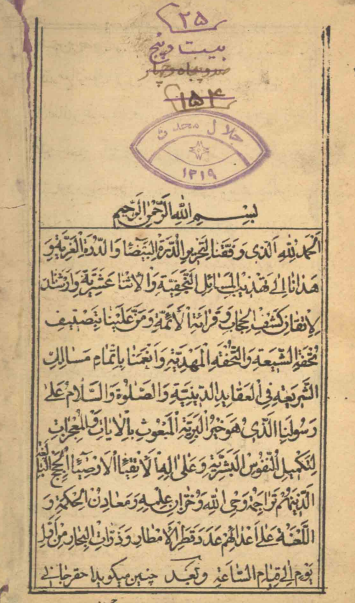 ٢٥
بیست و پنج
١٥٤
جلال محدث
١٣١٩
بسم الله الرحمن الرحیم
الحمد لله الذی وفقنا لتحریر الدرة البیضاء والدرة الغرویة و
هدانا الی تهذیب المسائل التحفیة والاثنا عشریة وارشدنا
لاتقان کشف الحجاب و قرائة الائمة و من علینا بتصنیف
تحفة الشیعة والتحفة المهدیة وانعمنا باتمام مسالک
الشریعة فی العقاید الدینیة والصلوة والسلام علی
رسولنا الذی هو خیر البریة المبعوث بالایات والمعجزات
لتکمیل النفوس البشریة وعلی اله الاتقیاء الارضیاء الحجج
الذینهم تراجمة وحی الله وخزان علمه ومعادن الحکمة و
اللعنة علی اعدائهم عدد قطر الامطار وذرات البحار من
یوم الی قیام الساعة وبعد چنین میگوید احقر